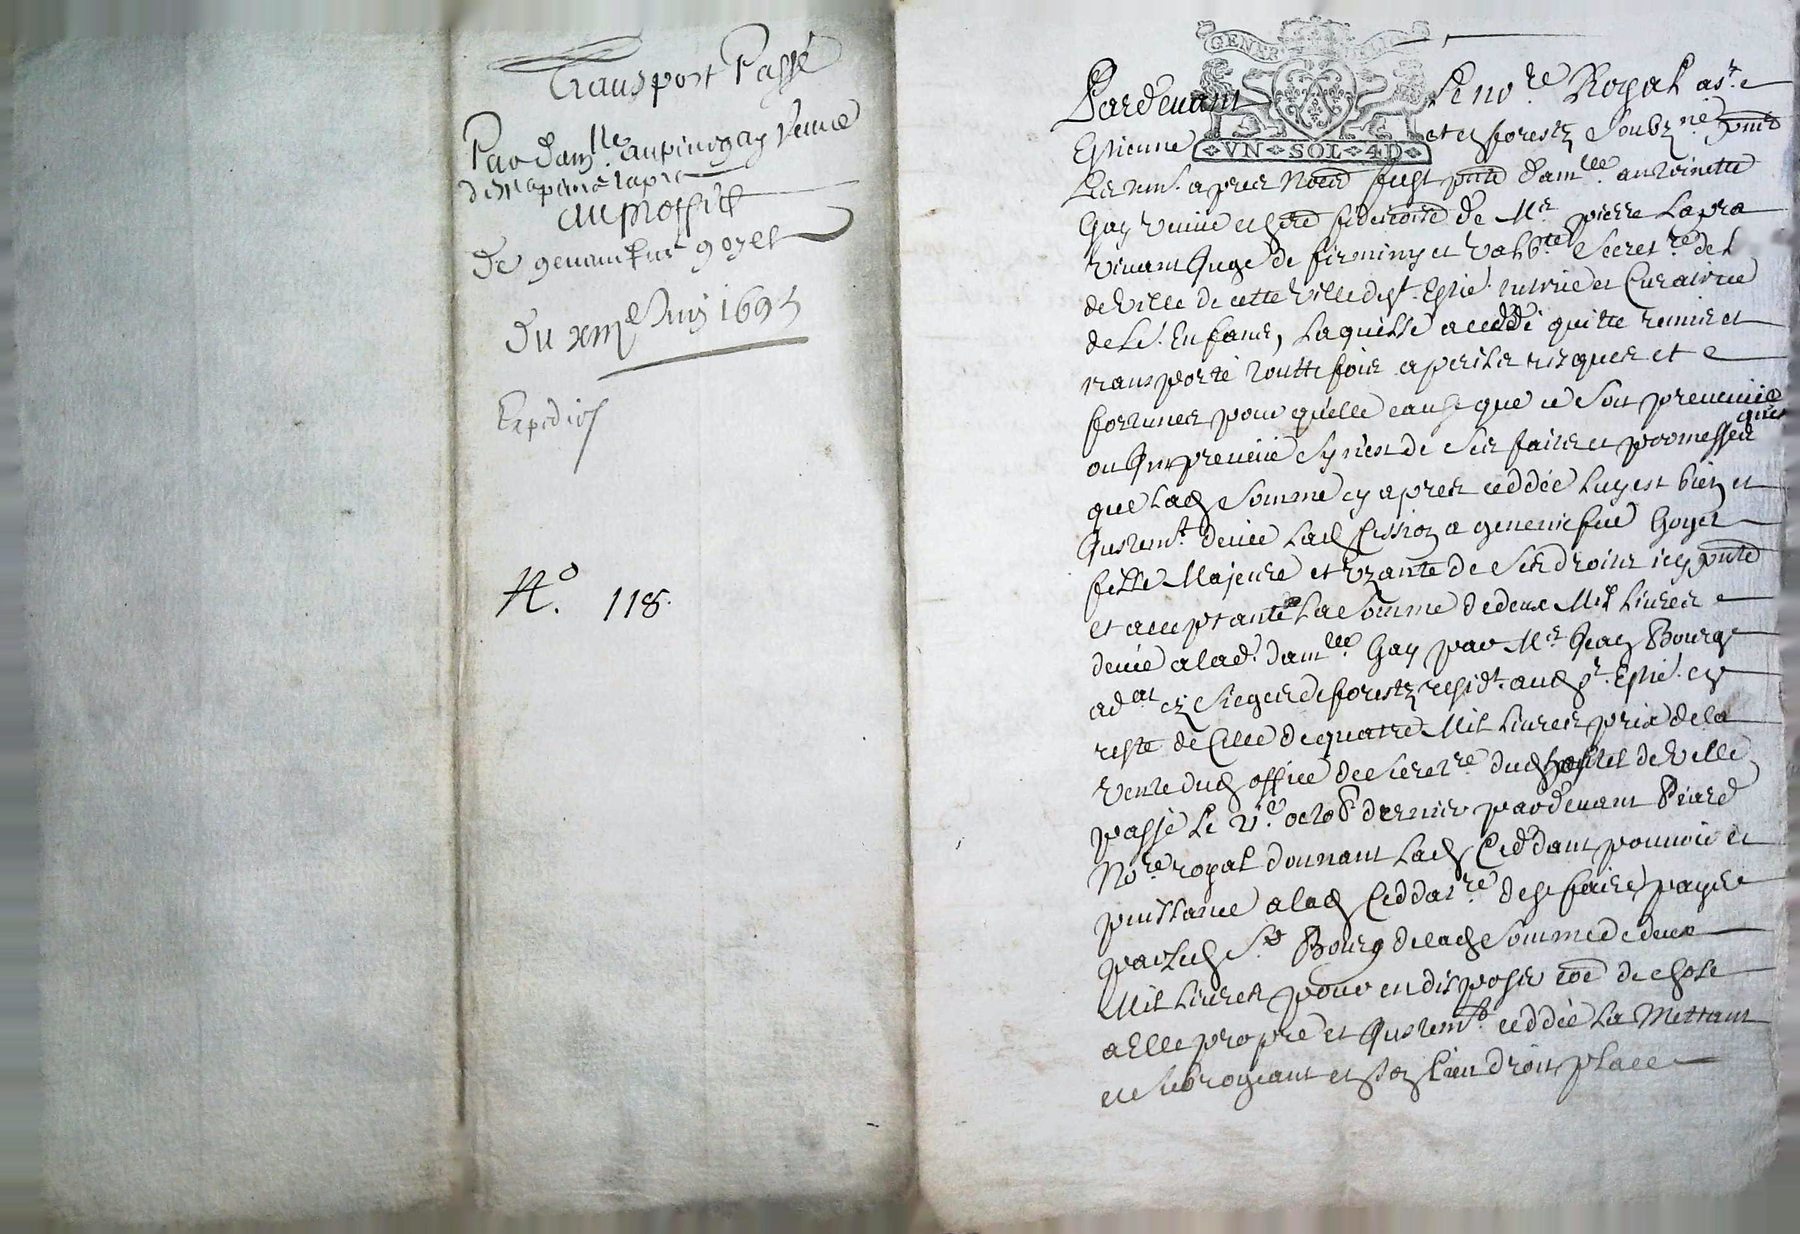 Transport Passé
Par dam.lle anthoinette gay veuve
de Mr pierre lapra
au proffict
de geneviefue goyet
du xiiie Juin 1695
Expedié
N.o 118.
GENER
VN SOL 4D
Pardevant Le no.re Royal a st e
Estienne et en forestz soubz.né
Les tesm. apres nommes fust pnte dam.lle antoinette
Gay veuve et here fideicoise de Mr pierre Lapra
vivant Juge de firminy et Secret.re de l
de ville de cette ville de st Estie. tutrice et Curatrice
de Ses Enfans, Laquelle a ceddé quitte remis et
transporté touttefois a perils risques et
fortunes pour quelle cause que ce soit preveüe
ou Impreveüe sy n'est de ses faits et promesses
que Lad somme cy apres ceddée Luy est bien et
Justem.t deüe Lad Cession a geneviefue Goyet
fille Majeure et Uzante de Ses droits icy pnte
et acceptante La Somme de deux Mil Livres
deüe a lad. dam.lle Gay par Mr Jean Bourg
ad.at ez sieges de forestz resid.t aud st. Estie. cy
reste de Celle de quatre Mil Livres prix de la
vente dud office de Secret.re dud hostel de ville
passé Le octob dernier pardevant
No.re royal donnant Lad Ceddant pouvoir et
puissance a lad Ceddat.re de se faire payer
par Led Sr Bourg de lad Somme de deux
Mil Livres pour en disposer coe de chose
a Elle propre et Justem.t ceddée La Mettant
et Subrogeant en son Lieu droit place